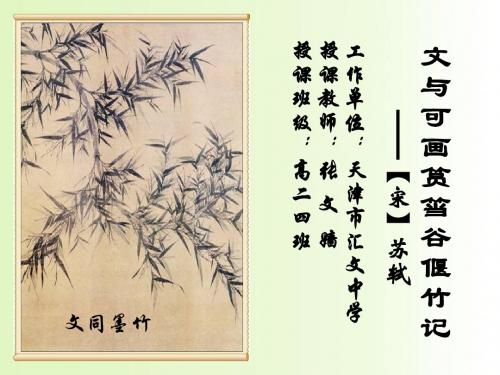 文与可画筼筜谷偃竹记
——【宋】苏轼
工作单位：天津市汇文中学
授课教师：张文嫱
授课班级：高二四班
文同墨竹